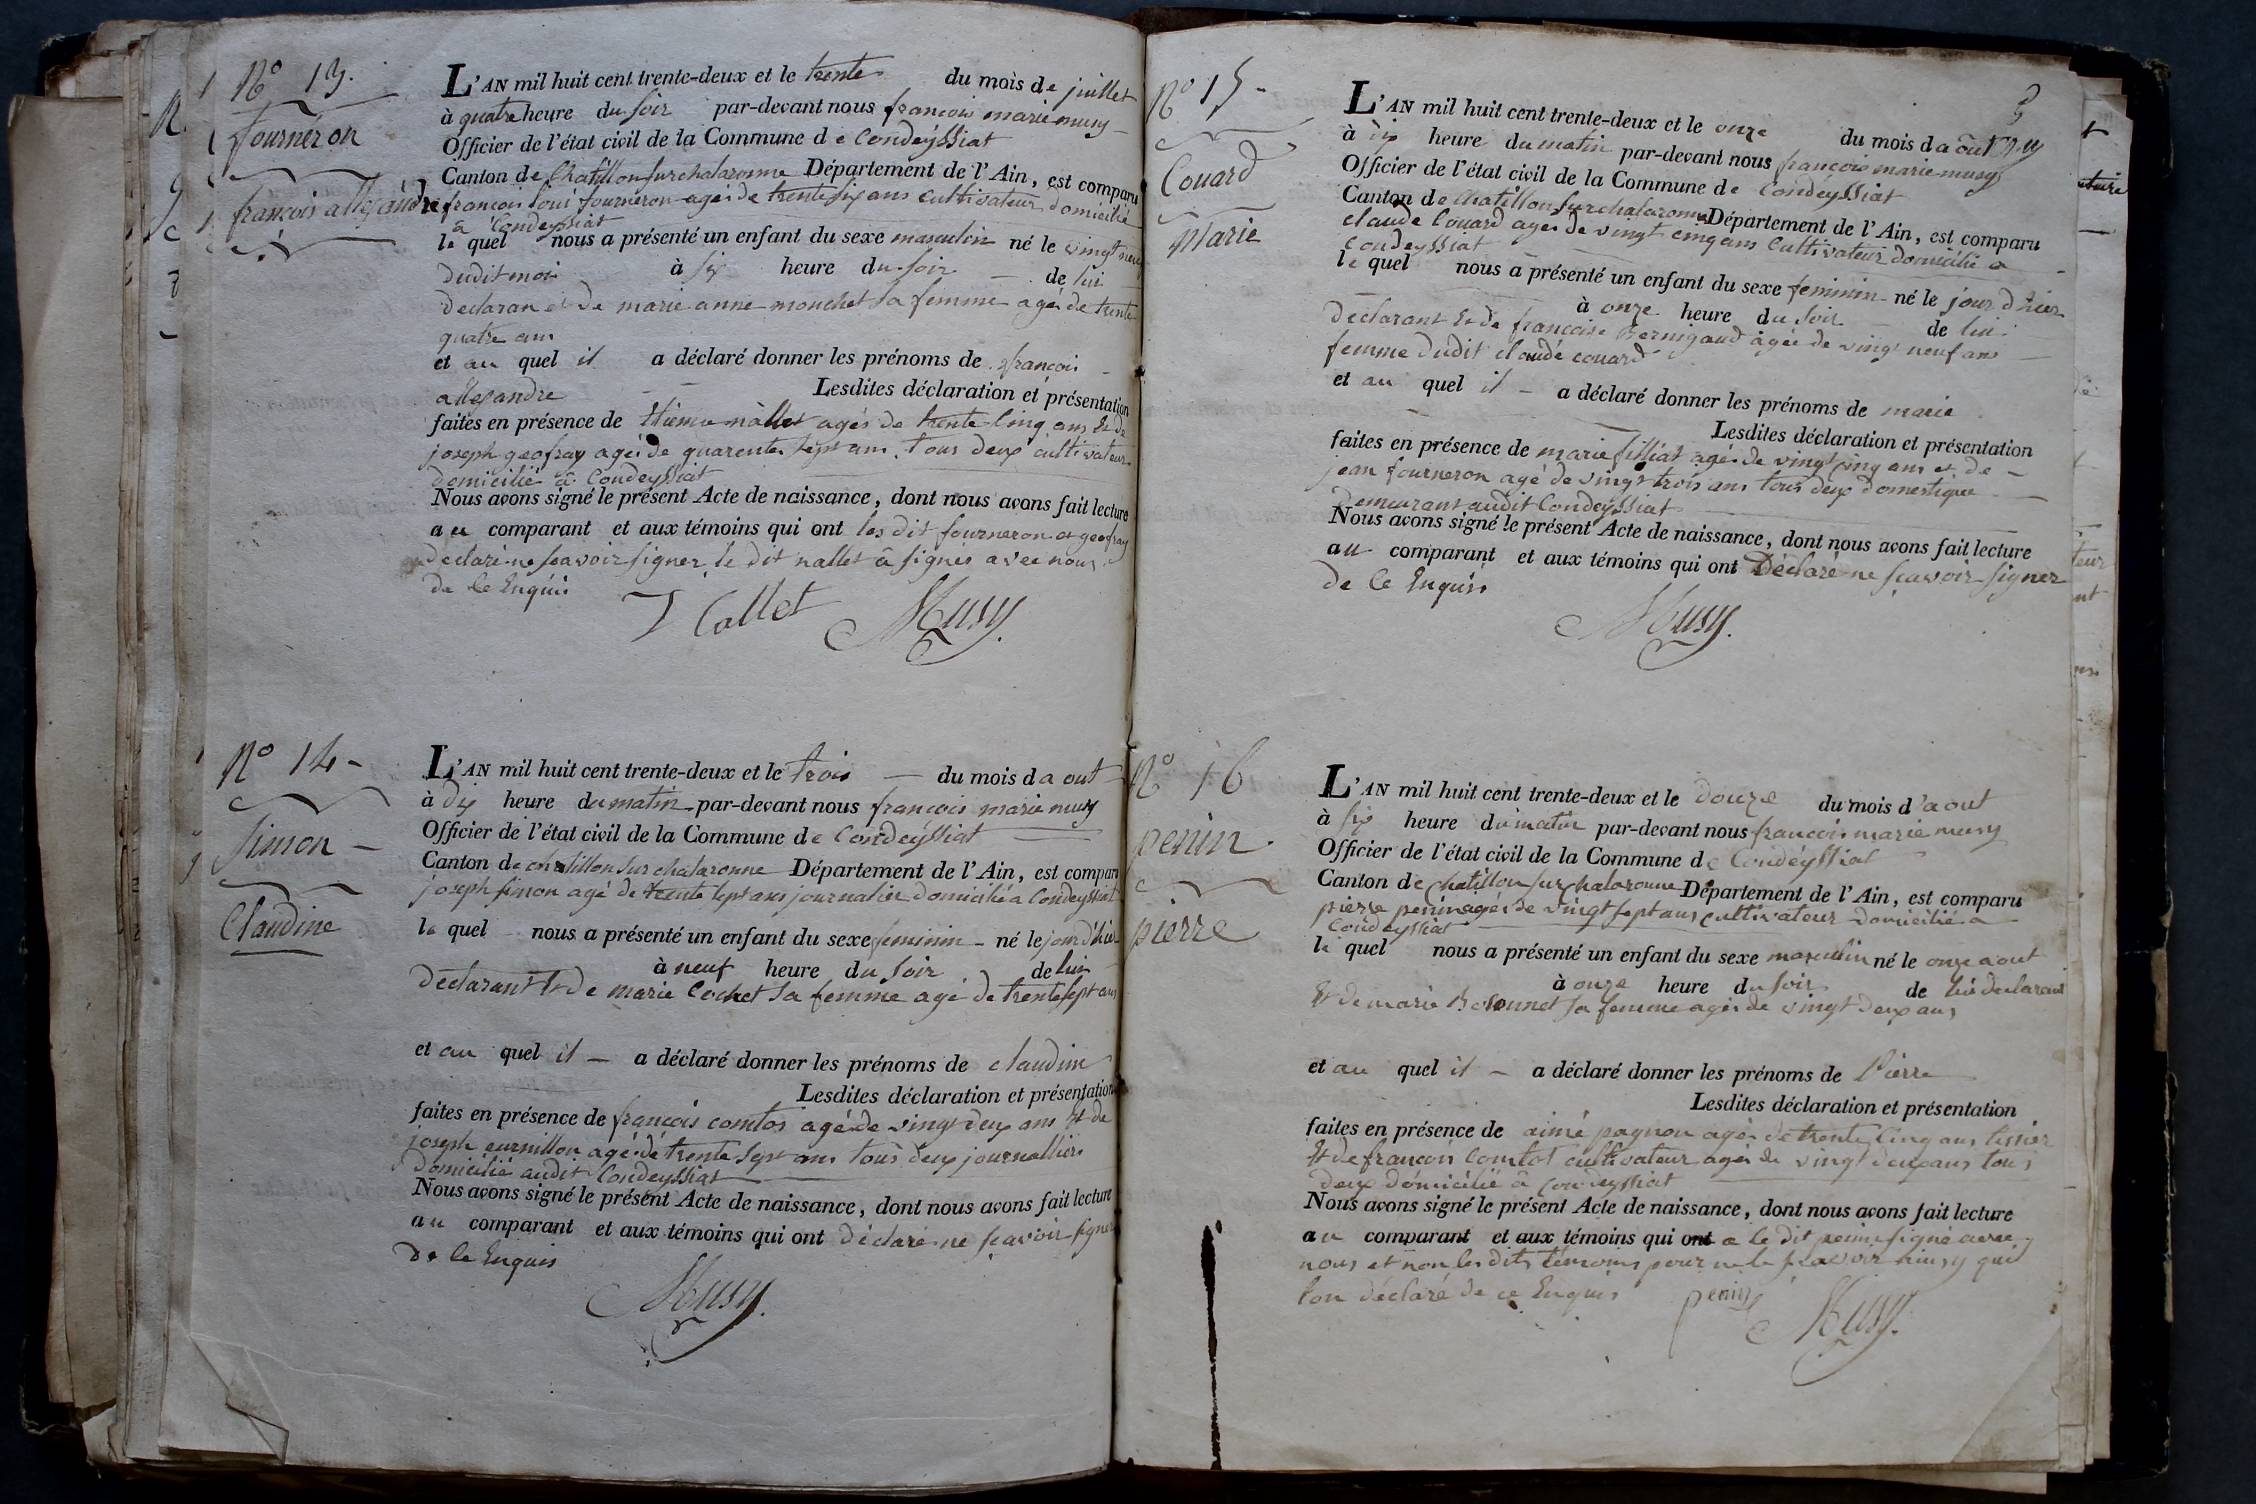 N° 13.
fourneron
françois allexandre
L'AN mil huit cent trente-deux et le trente du mois de juillet
à quatre heure du soir par-devant nous françois marie musy
Officier de l'état civil de la Commune de Condeyssiat
Canton de Chatillon sur chalaronne Département de l'Ain, est comparu
francois louis fourneron agé de trente six ans cultivateur domicilié
à Condeyssiat
le quel nous a présenté un enfant du sexe masculin né le vingt neuf
dudit moi à six heure du soir de lui
declaran et de marie anne monchet sa femme agé de trente
quatre ans
et au quel il a déclaré donner les prénoms de françois
allexandre Lesdites déclaration et présentation
faites en présence de nallet agés de trente cinq ans et de
joseph geofray agé de quarente sept ans tous deux cultivateurs
domicilié à Condeyssiat
Nous avons signé le présent Acte de naissance, dont nous avons fait lecture
au comparant et aux témoins qui ont les dit fourneron et geofray
declaré ne scavoir signer le dit nallet a signés avec nous
de ce Enquis
Musy
N° 14
Simon
Claudine
L'AN mil huit cent trente-deux et le trois du mois d aout
à dix heure du matin par-devant nous francois marie musy
Officier de l'état civil de la Commune de Condeyssiat
Canton de chatillon sur chalaronne Département de l'Ain, est comparu
joseph simon agé de trente sept ans journalier domicilié a Condeyssiat
le quel nous a présenté un enfant du sexe feminin né le jour d'hier
à neuf heure du soir de lui
déclarant et de marie Cochet sa femme agé de trente sept ans
et au quel il a déclaré donner les prénoms de claudine
Lesdites déclaration et présentation
faites en présence de françois comtos agé de vingt deux ans et de
joseph curnillon agé de trente sept ans tous deux journalliers
domicilié audit Condeyssiat
Nous avons signé le présent Acte de naissance, dont nous avons fait lecture
au comparant et aux témoins qui ont déclaré ne scavoir signer
de ce Enquis
Musy
N° 15
Couard
Marie
L'AN mil huit cent trente-deux et le onze du mois d aout
à dix heure du matin par-devant nous françois marie musy
Officier de l'état civil de la Commune de Condeyssiat
Canton de Chatillon sur chalaronne Département de l'Ain, est comparu
claude Couard agé de vingt cinq ans Cultivateur domicilié a
Condeyssiat
le quel nous a présenté un enfant du sexe feminin né le jour d'hier
à onze heure du soir de lui
declarant Et de françoise Bernigaud agée de vingt neuf ans
femme dudit claude couard
et au quel il a déclaré donner les prénoms de marie
Lesdites déclaration et présentation
faites en présence de marie filliat agé de vingt cinq ans et de
jean fourneron agé de vingt trois ans tous deux domestique
Demeurant audit Condeyssiat
Nous avons signé le présent Acte de naissance, dont nous avons fait lecture
au comparant et aux témoins qui ont Déclaré ne scavoir signer
de ce Enquis
Musy
N° 16
penin
pierre
L'AN mil huit cent trente-deux et le douze du mois d'aout
à six heure du matin par-devant nous francois marie musy
Officier de l'état civil de la Commune de Condéyssiat
Canton de chatillon sur chalaronne Département de l'Ain, est comparu
pierre penin agé de vingt sept ans cultivateur domicilié a
Condeyssiat
le quel nous a présenté un enfant du sexe masculin né le onze aout
à onze heure du soir de lui declarant
Et de marie sa femme agée de vingt deux ans
et au quel il a déclaré donner les prénoms de Pierre
Lesdites déclaration et présentation
faites en présence de aimé pagnon agé de trente cinq ans tissier
Et de francois Comtos cultivateur agé de vingt deux ans tous
deux domicilié à Condeyssiat
Nous avons signé le présent Acte de naissance, dont nous avons fait lecture
au comparant et aux témoins qui ont a le dit penin signé avec
nous et non les dits témoins pour ne le scavoir ainsy qui
lon déclaré de ce Enquis
penin Musy